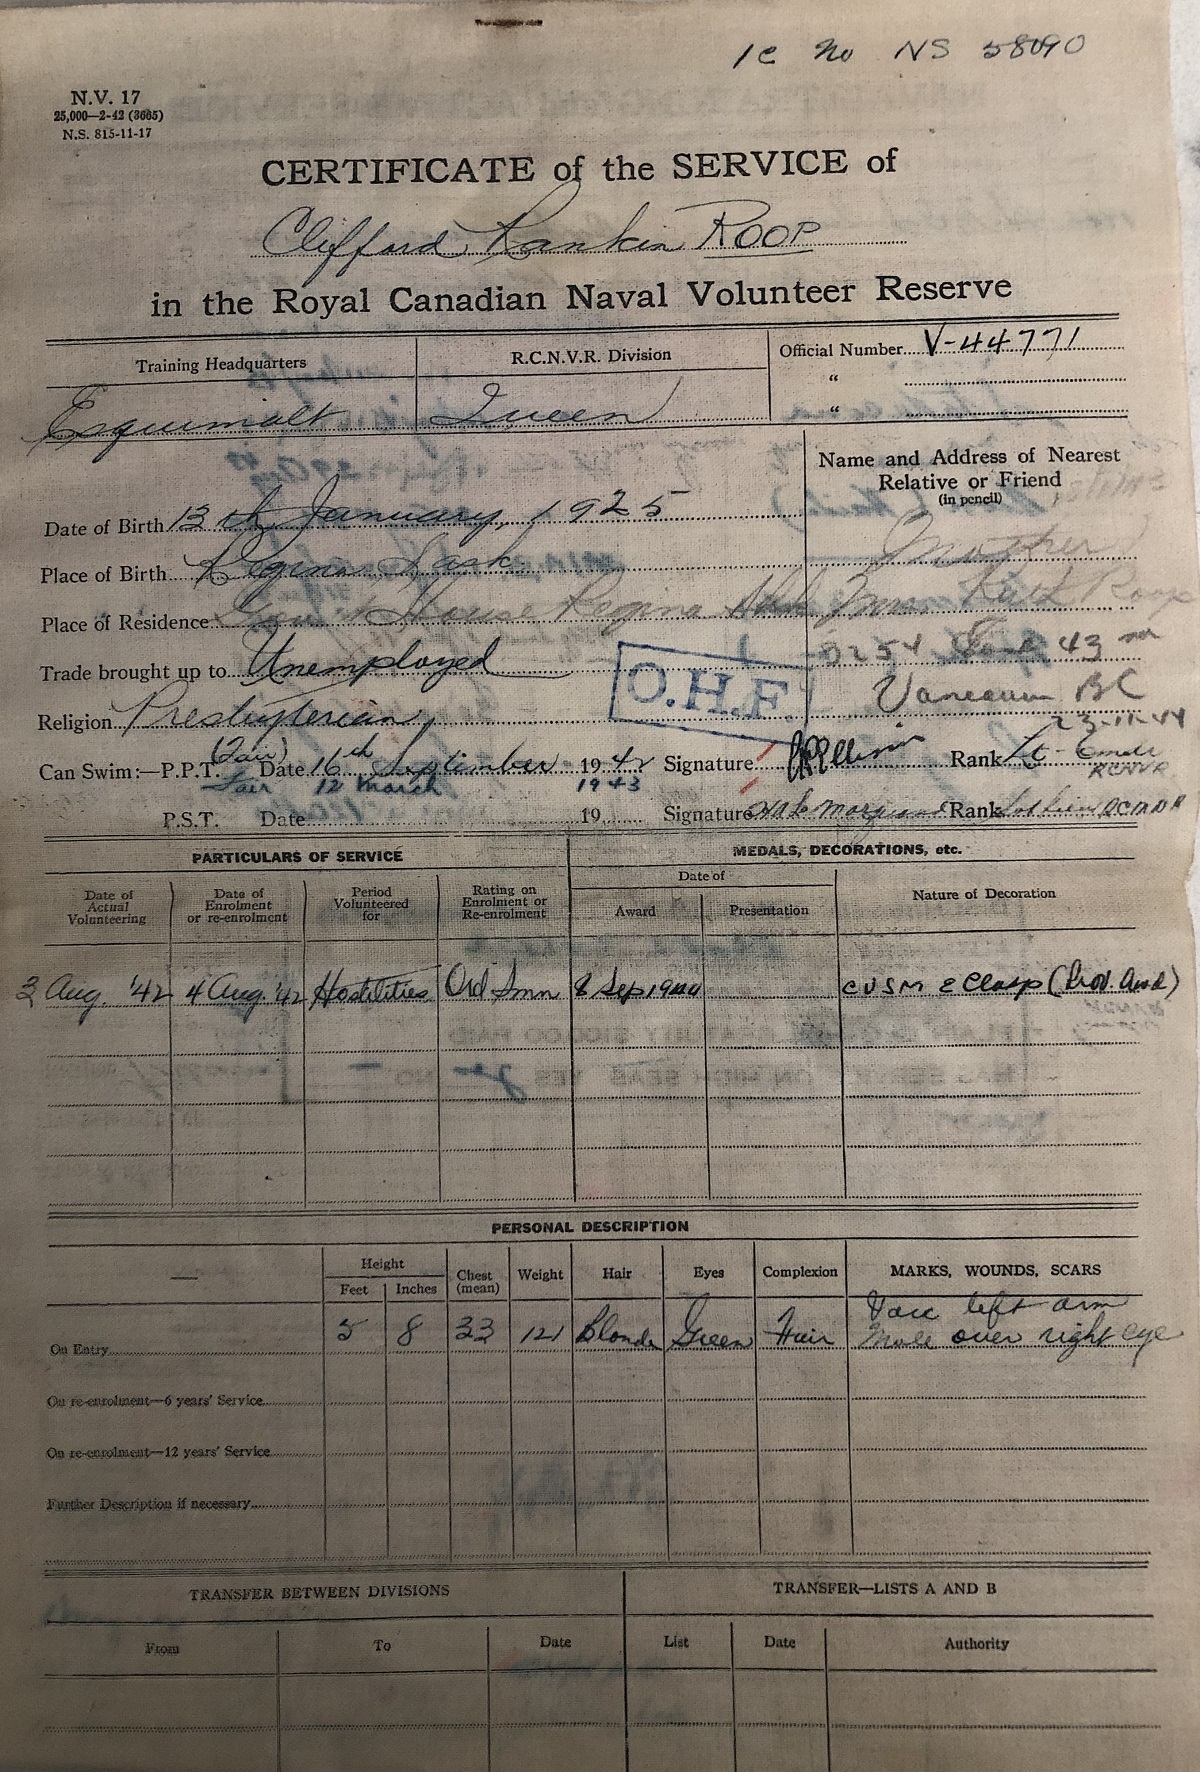 1c No NS 58090
N.V. 17
25,000—2-42 (3665)
N.S. 815-11-17
CERTIFICATE of the SERVICE of
Clifford Rankin ROOP
in the Royal Canadian Naval Volunteer Reserve
Training Headquarters R.C.N.V.R. Division Official Number V-44771
"
"
Esquimalt Queen
Name and Address of Nearest
Relative or Friend
(in pencil)
Date of Birth 13th January, 1925
Mother
Place of Birth Regina Sask
Place of Residence Gov't House Regina Sask Mrs. Ruth Roop
Trade brought up to Unemployed 43
O.H.F.
Vancouver BC
Religion Presbyterian
23-11-44
Can Swim:—P.P.T. (Fair) Date 16th September 1942 Signature Rank Lt-Cmdr
Fair 12 March 1943 RCNVR
P.S.T. Date 19 Signature Rank
PARTICULARS OF SERVICE MEDALS, DECORATIONS, etc.
Date of Actual Volunteering Date of Enrolment or re-enrolment Period Volunteered for Rating on Enrolment or Re-enrolment Date of Nature of Decoration
Award Presentation
3 Aug. '42 4 Aug. '42 Hostilities Ord Smn 8 Sep 1944 CVSM & Clasp (Prov. Awd)
PERSONAL DESCRIPTION
— Height Chest (mean) Weight Hair Eyes Complexion MARKS, WOUNDS, SCARS
Feet Inches
Vacc left arm
On Entry 5 8 33 121 Blonde Green Fair Mole over right eye
On re-enrolment—6 years' Service
On re-enrolment—12 years' Service
Further Description if necessary
TRANSFER BETWEEN DIVISIONS TRANSFER—LISTS A AND B
From To Date List Date Authority